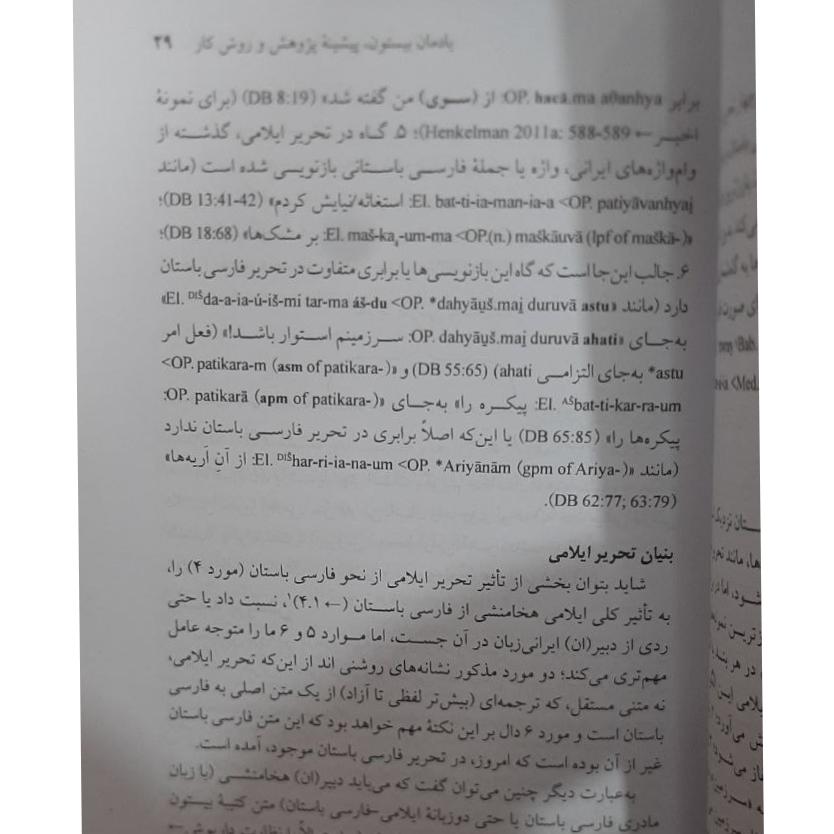 یادمان بیستون، پیشینهٔ پژوهش و روش کار ۲۹
برابر OP. hacā.ma aθanhya: از (سوی) من گفته شد» (DB 8:19) (برای نمونهٔ
اخیر ← Henkelman 2011a: 588-589)؛ ۵. گاه در تحریر ایلامی، گذشته از
وام‌واژه‌های ایرانی، واژه یا جملهٔ فارسی باستانی بازنویسی شده است (مانند
El. bat-ti-ia-man-ia-a <OP. patiyāvanhyai̯: استغاثه/نیایش کردم» (DB 13:41-42)؛
«El. maš-ka₄-um-ma <OP.(n.) maškāuvā (lpf of maškā-): بر مشک‌ها» (DB 18:68)؛
۶. جالب این‌جا است که گاه این بازنویسی‌ها یا برابری متفاوت در تحریر فارسی باستان
دارد (مانند «El. ᴰᴵˢda-a-ia-ú-iš-mi tar-ma áš-du <OP. *dahyāu̯š.mai̯ duruvā astu»
به‌جای «OP. dahyāu̯š.mai̯ duruvā ahati: سرزمینم استوار باشد!» (فعل امر
*astu به‌جای التزامی ahati) (DB 55:65) و «<OP. patikara-m (asm of patikara-)
El. ᴬˢbat-ti-kar-ra-um: پیکره را» به‌جای «OP. patikarā (apm of patikara-):
پیکره‌ها را» (DB 65:85) یا این‌که اصلاً برابری در تحریر فارسی باستان ندارد
(مانند «El. ᴰᴵˢhar-ri-ia-na-um <OP. *Ariyānām (gpm of Ariya-): از آنِ آریه‌ها»
(DB 62:77; 63:79).
بنیان تحریر ایلامی
شاید بتوان بخشی از تأثیر تحریر ایلامی از نحو فارسی باستان (مورد ۴) را،
به تأثیر کلی ایلامی هخامنشی از فارسی باستان (← ۴.۱)¹، نسبت داد یا حتی
ردی از دبیر(ان) ایرانی‌زبان در آن جست، اما موارد ۵ و ۶ ما را متوجه عامل
مهم‌تری می‌کند؛ دو مورد مذکور نشانه‌های روشنی اند از این‌که تحریر ایلامی،
نه متنی مستقل، که ترجمه‌ای (بیش‌تر لفظی تا آزاد) از یک متن اصلی به فارسی
باستان است و مورد ۶ دال بر این نکتهٔ مهم خواهد بود که این متن فارسی باستان
غیر از آن بوده است که امروز، در تحریر فارسی باستان موجود، آمده است.
به‌عبارت دیگر چنین می‌توان گفت که می‌باید دبیر(ان) هخامنشی (با زبان
مادری فارسی باستان یا حتی دوزبانهٔ ایلامی-فارسی باستان) متن کتیبهٔ بیستون